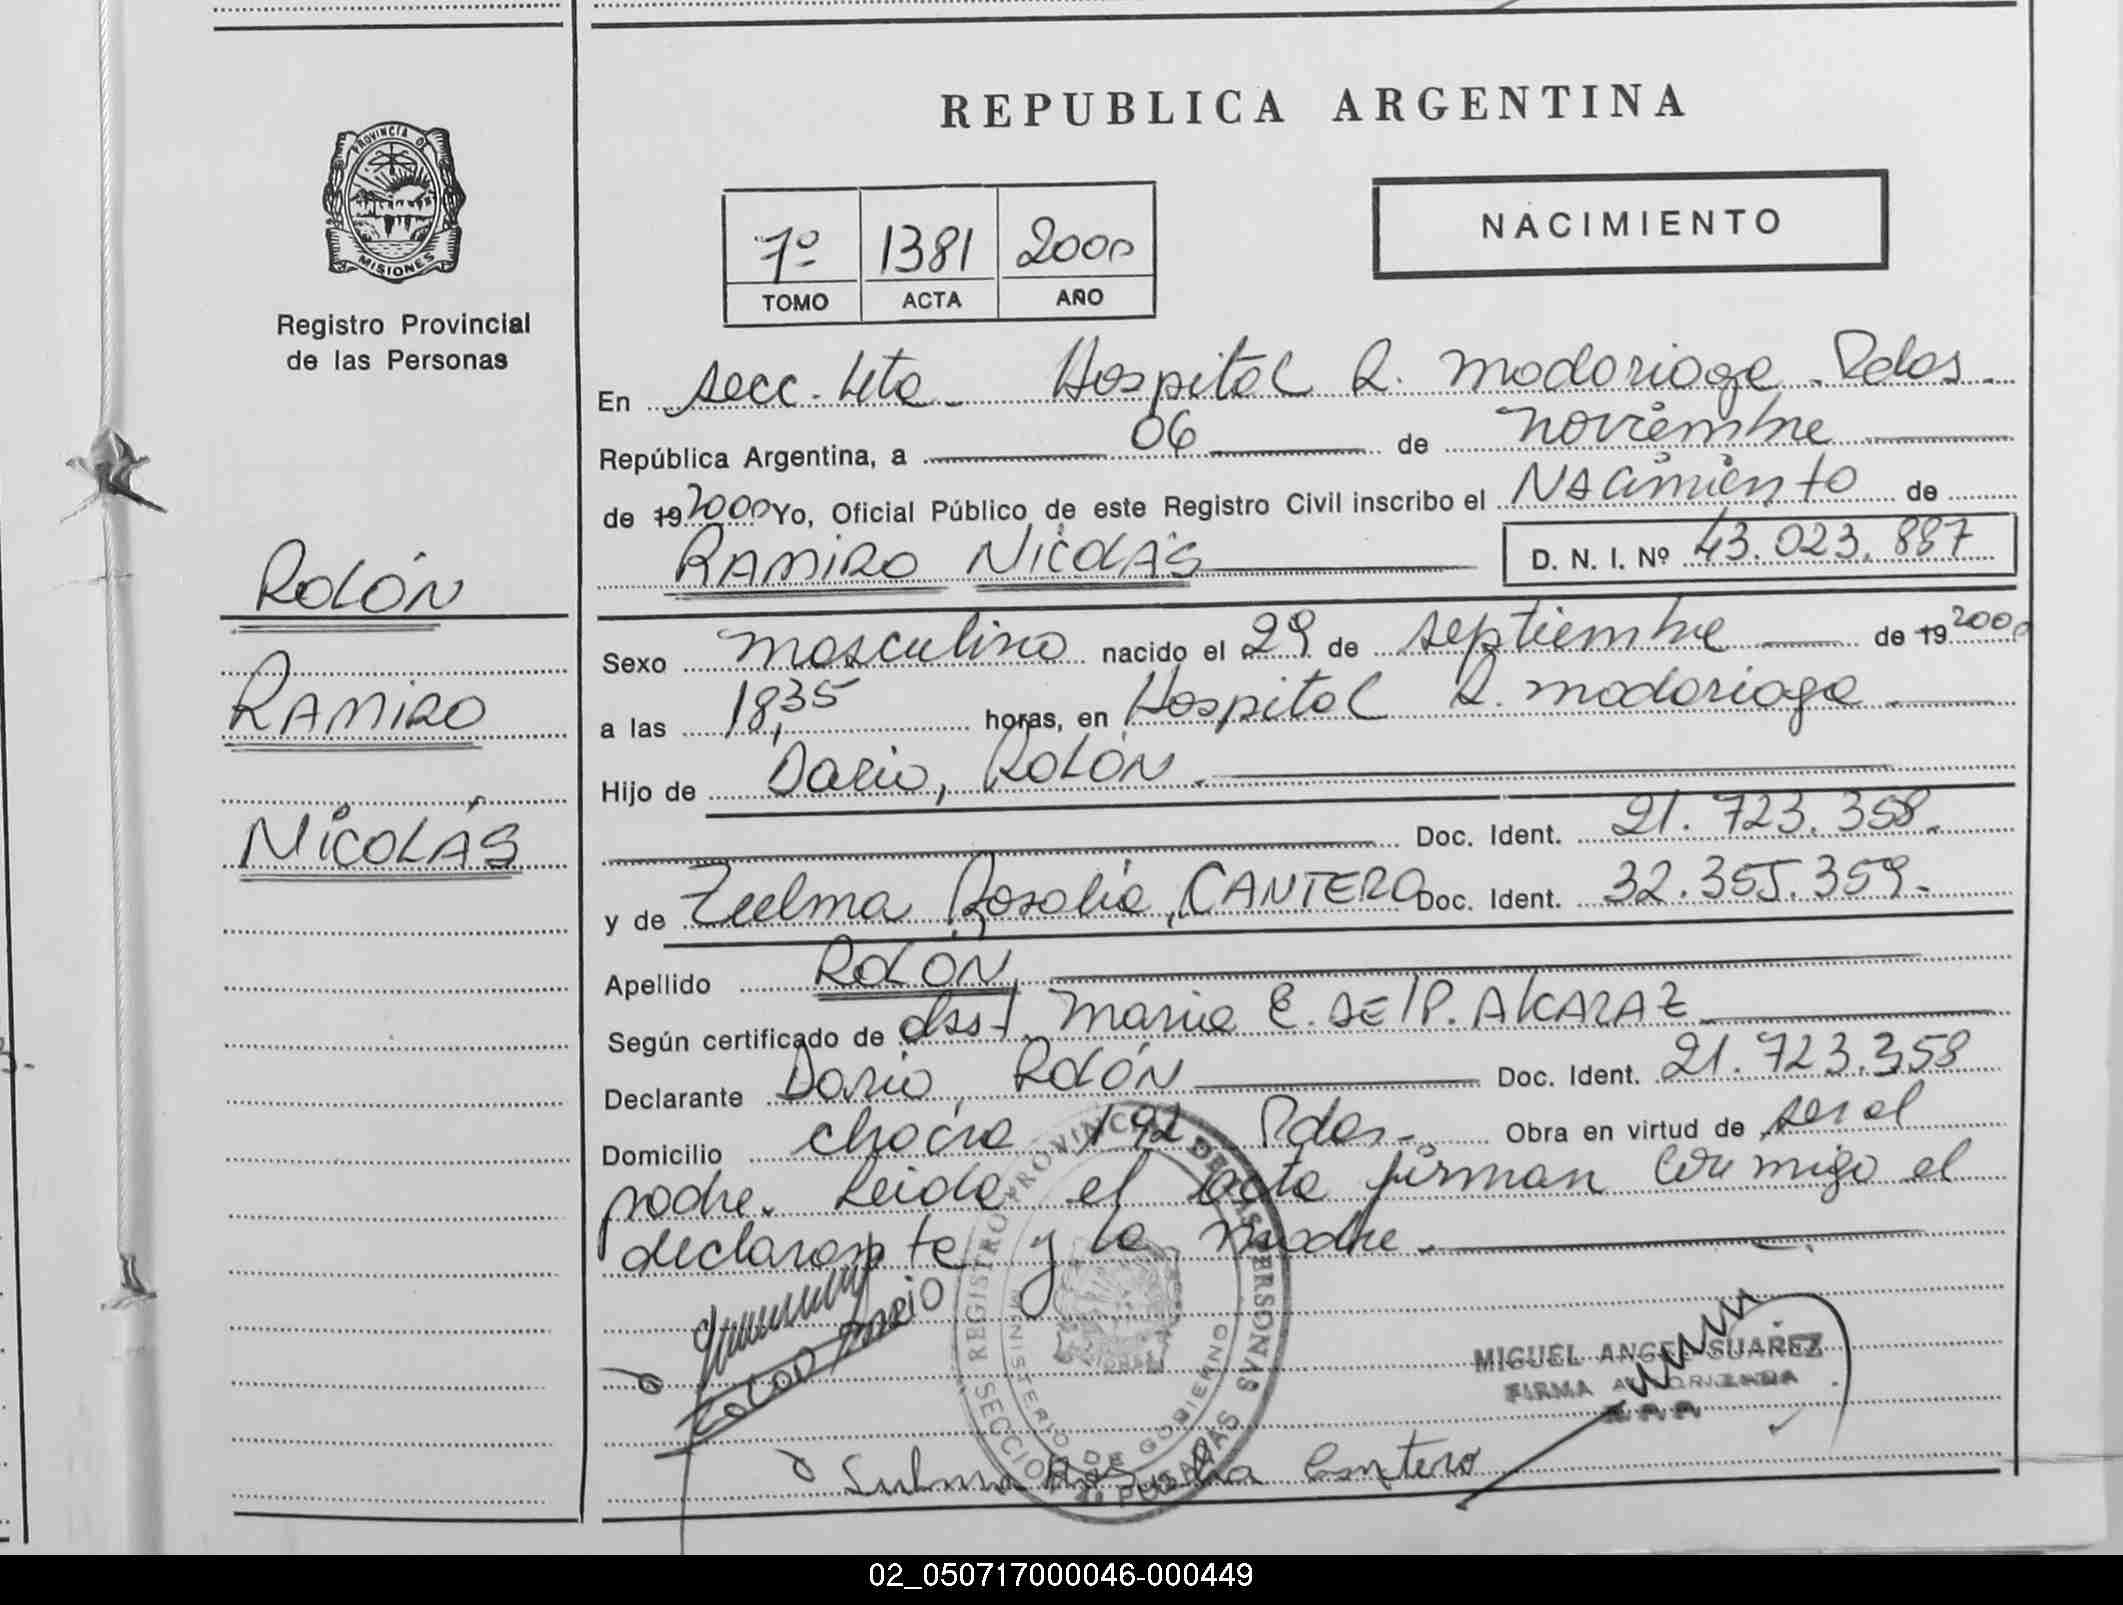 PROVINCIA DE
MISIONES
Registro Provincial
de las Personas
ROLÓN
RAMIRO
NICOLÁS
REPUBLICA ARGENTINA
NACIMIENTO
1º 1381 2000
TOMO ACTA AÑO
En secc. 4ta. Hospital R. Madariaga. Pdas.
República Argentina, a 06 de noviembre
de 19 2000 Yo, Oficial Público de este Registro Civil inscribo el NACimiento de
RAMIRO NICOLÁS D. N. I. Nº 43.023.887
Sexo masculino nacido el 29 de septiembre de 19 2000
a las 18,35 horas, en Hospital R. Madariaga.
Hijo de Dario, ROLÓN.
Doc. Ident. 21.723.358.
y de Zulma Rosalia, CANTERO Doc. Ident. 32.355.359.
Apellido ROLÓN
Según certificado de obst. Maria E. DE P. ALCARAZ
Declarante Dario, ROLÓN Doc. Ident. 21.723.358
Domicilio chacra 192 Pdas. Obra en virtud de ser el
padre. Leida el acta firman conmigo el
declarante y la madre.
ROLON DARIO
REGISTRO PROVINCIAL DE LAS PERSONAS
MINISTERIO DE GOBIERNO
SECCION 4º POSADAS
MIGUEL ANGEL SUAREZ
FIRMA AUTORIZADA
Cantero
02_050717000046-000449